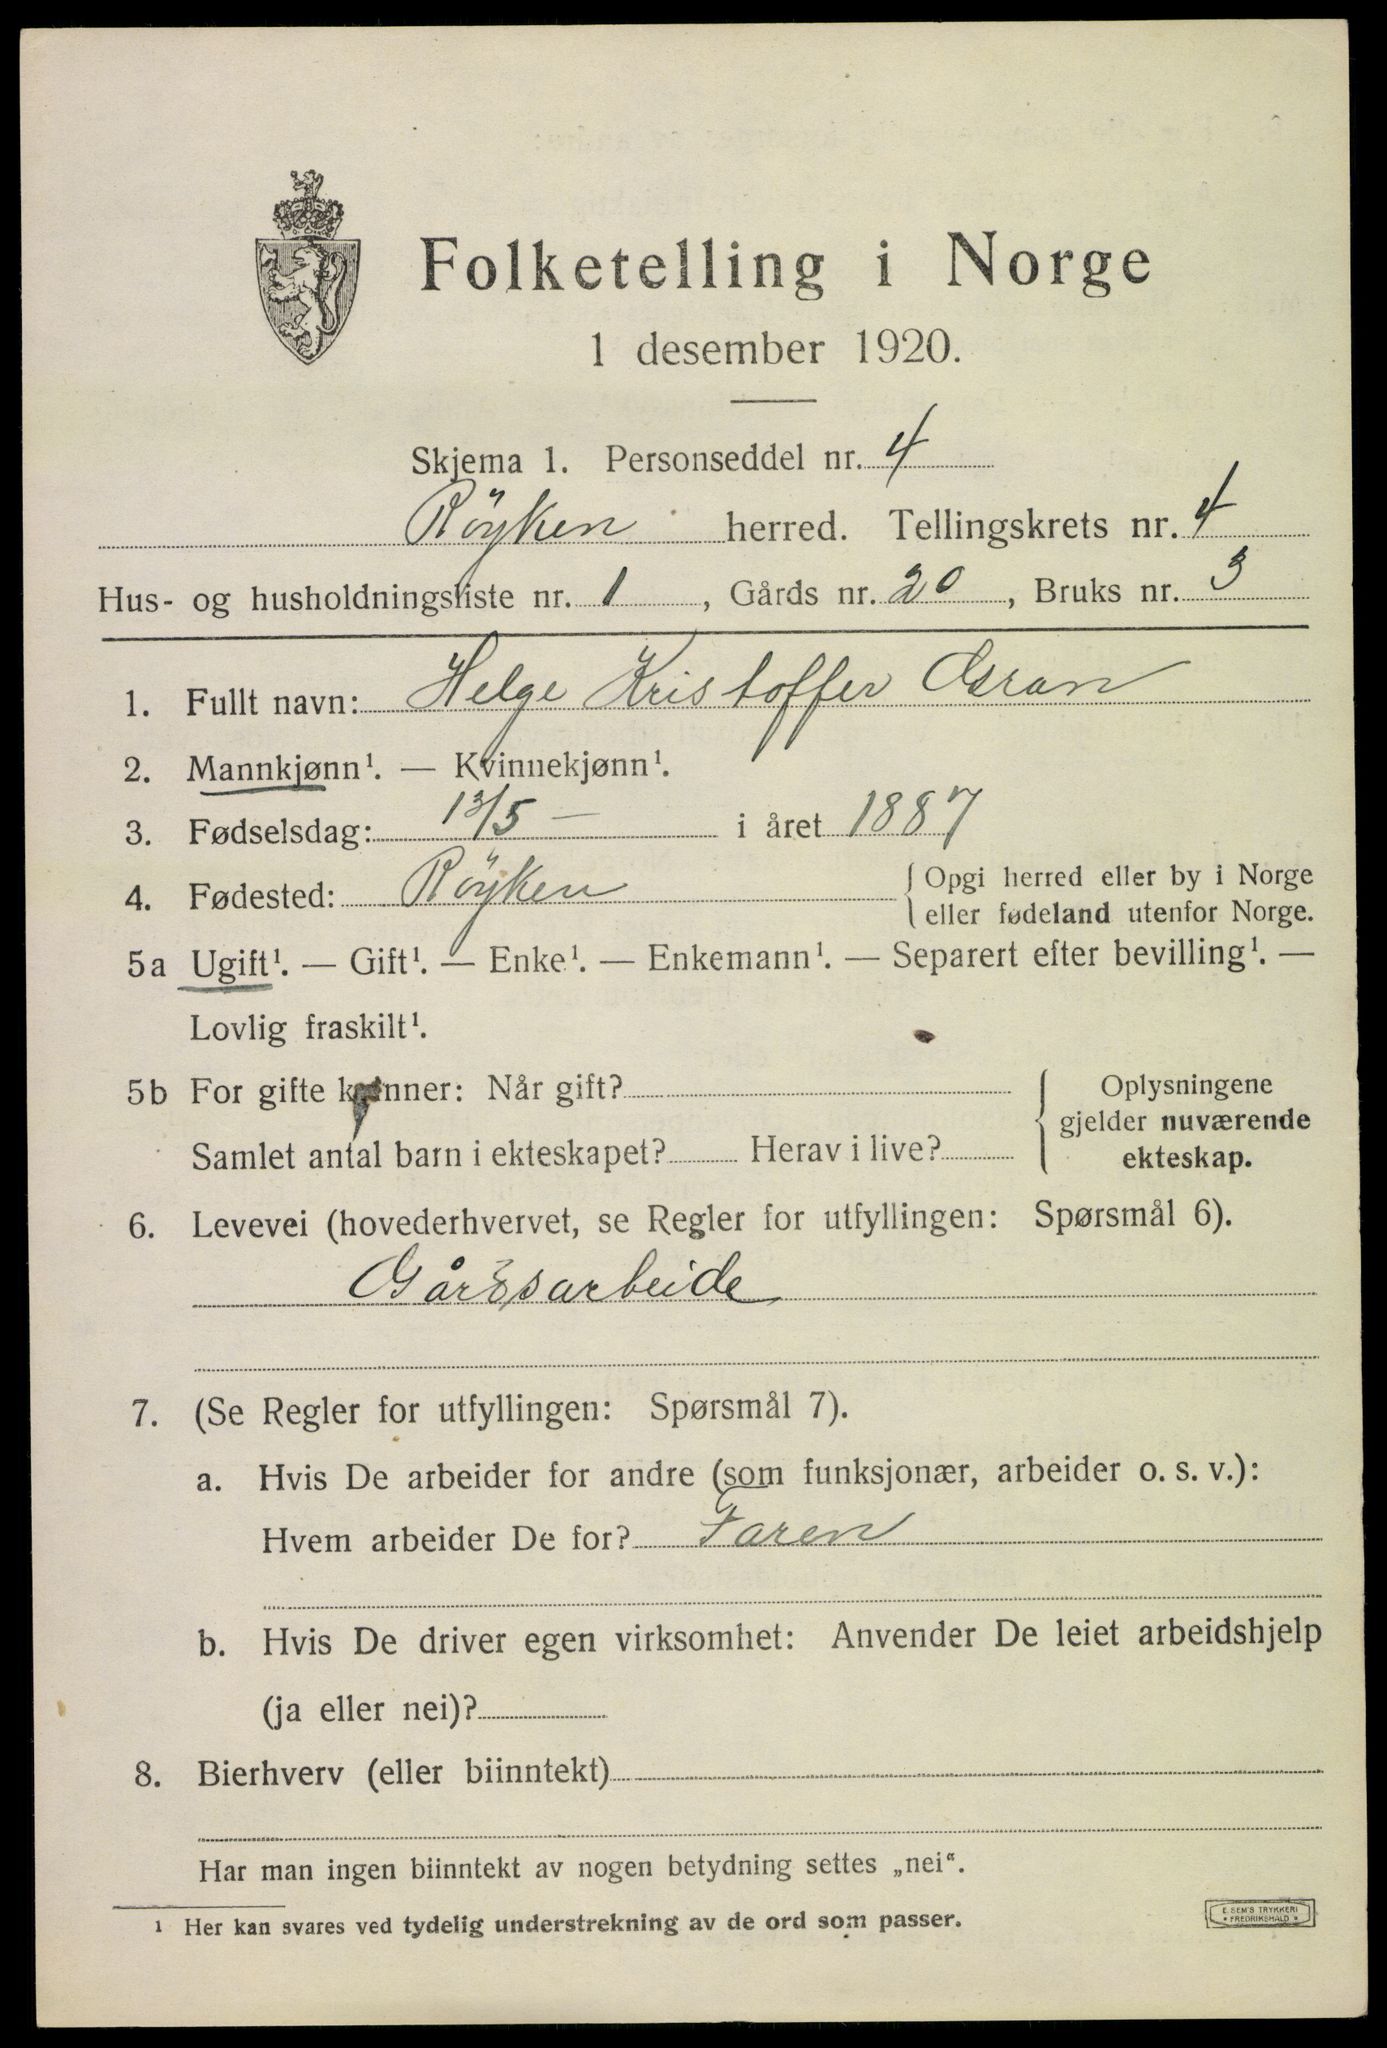 Folketelling i Norge
1 desember 1920.
Skjema 1. Personseddel nr. 4
Röyken herred. Tellingskrets nr. 4
Hus- og husholdningsliste nr. 1, Gårds nr. 20, Bruks nr. 3
1. Fullt navn: Helge Kristoffer
2. Mannkjønn¹. — Kvinnekjønn¹.
3. Fødselsdag: 13/5 — i året 1887
4. Fødested: Röyken { Opgi herred eller by i Norge
eller fødeland utenfor Norge.
5a Ugift¹. — Gift¹. — Enke¹. — Enkemann¹. — Separert efter bevilling¹. —
Lovlig fraskilt¹.
5b For gifte kvinner: Når gift? { Oplysningene
gjelder nuværende
Samlet antal barn i ekteskapet? Herav i live? ekteskap.
6. Levevei (hovederhvervet, se Regler for utfyllingen: Spørsmål 6).
Gårdsarbeide
7. (Se Regler for utfyllingen: Spørsmål 7).
a. Hvis De arbeider for andre (som funksjonær, arbeider o. s. v.):
Hvem arbeider De for? Faren
b. Hvis De driver egen virksomhet: Anvender De leiet arbeidshjelp
(ja eller nei)?
8. Bierhverv (eller biinntekt)
Har man ingen biinntekt av nogen betydning settes „nei“.
¹ Her kan svares ved tydelig understrekning av de ord som passer.
E. SEM'S TRYKKERI
FREDRIKSHALD